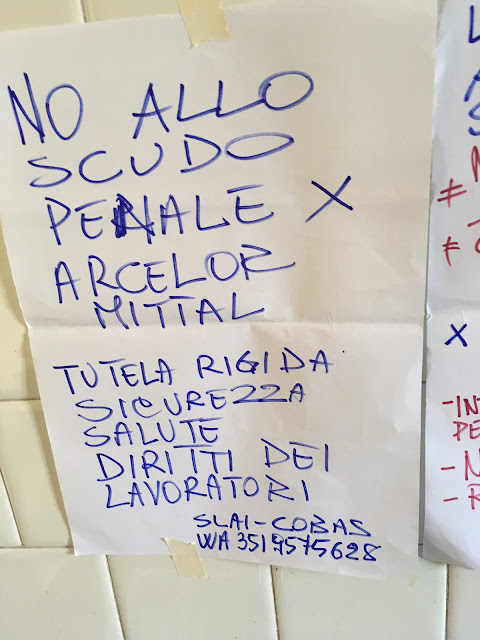 NO ALLO
SCUDO
PENALE X
ARCELOR
MITTAL
TUTELA RIGIDA
SICUREZZA
SALUTE
DIRITTI DEI
LAVORATORI
SLAI-COBAS
WA 3519575628
≠
≠
X
-
-
-